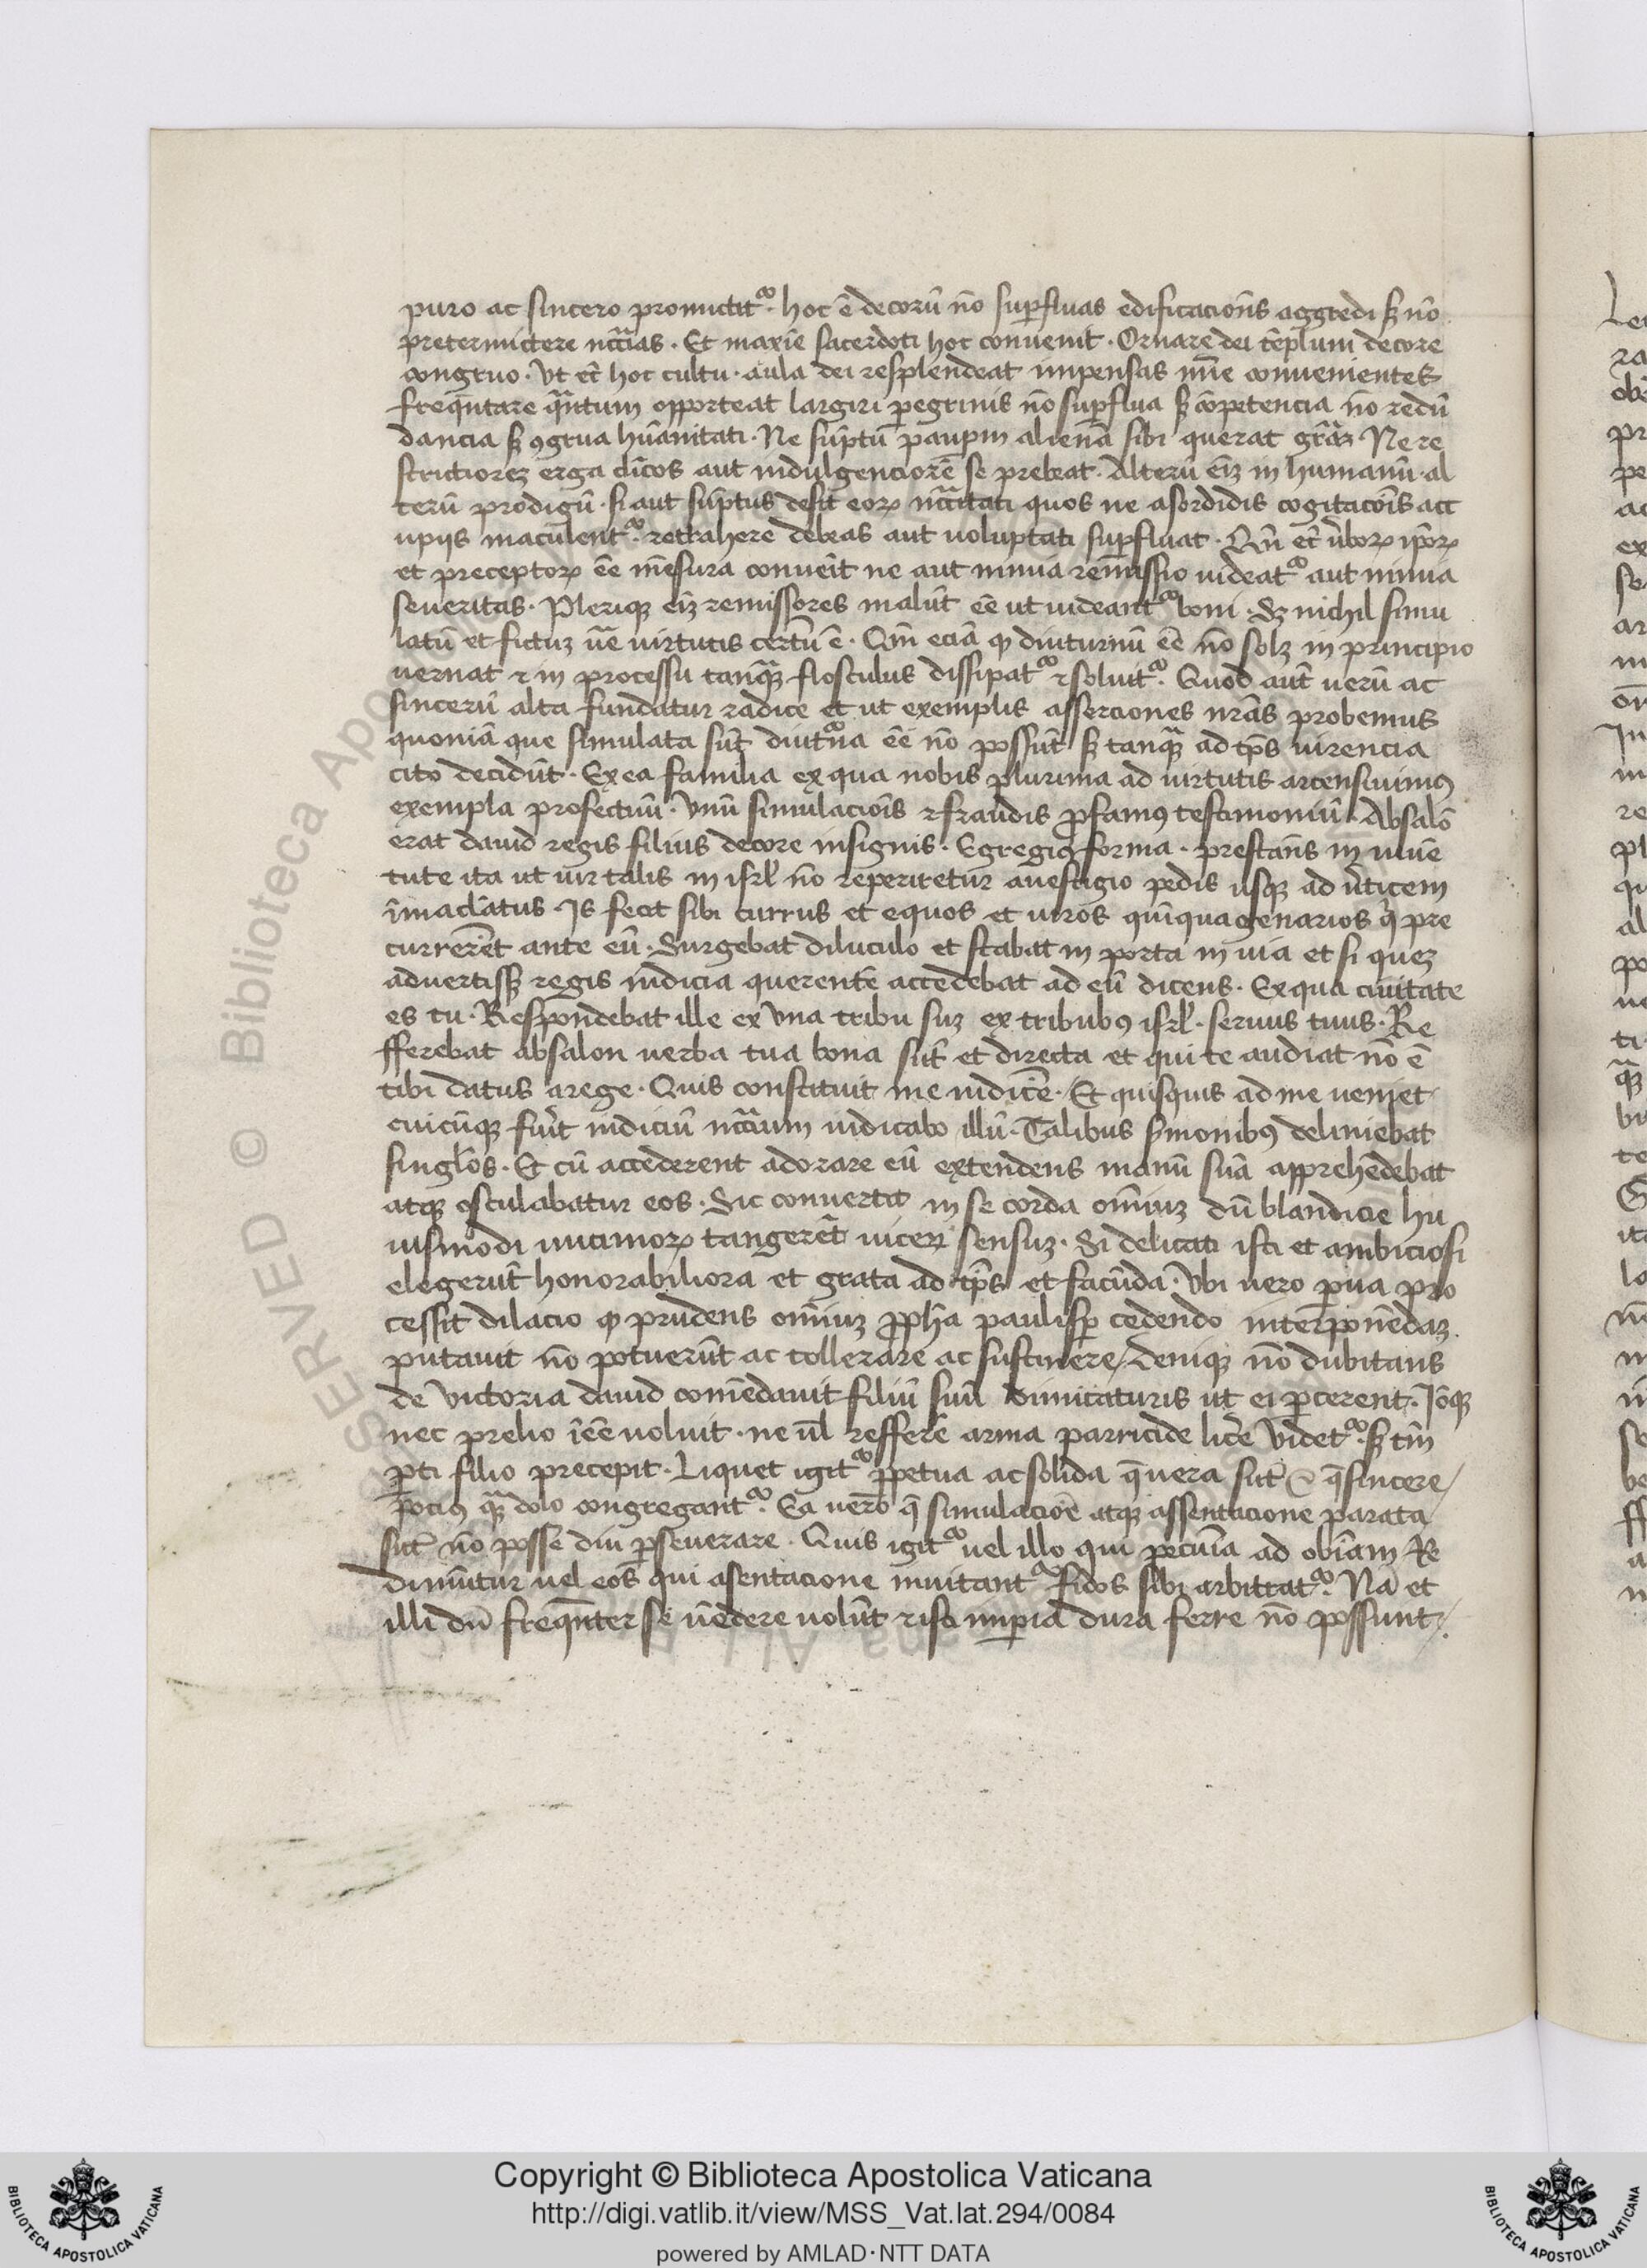 puro ac sincero promictit᷑. hoc ē decorū nō suꝑfluas edificacionēs aggredi sꝫ nō
pretermictere nccārias. Et maxīe sacerdoti hoc convenit. Ornare dei tēplum decore
congruo. Ut ec̄ hoc cultu. aula dei resplendeat impensas mīe convenientes
freq̄ntare q̄ntum opporteat largiri ꝑegrinis nō suꝑflua sꝫ cōpetencia nō redū
dancia sꝫ ꝯgrua hūanitati. Ne sūptū pauꝑm alienā sibi querat grā̄ꝫ. Ne re
strictioreꝫ erga cl̄icos aut indulgenciorē se prebeat. Alterū eīꝫ inhumanū. al
terū prodigū. si aut sūptus desit eoꝝ nccītati quos ne asordidis cogitacōis act
upiis maculent᷑. retrahere debeas aut uoluptati suꝑfluat. Qn̄ ec̄ ūboꝝ ip̄oꝝ
et preceptoꝝ eē mēsura convēit ne aut nimia remissio uideat᷑ aut nimia
seueritas. Pleriqꝫ eīꝫ remissores malūt eē ut uideant᷑ boni. Sꝫ nichil simu
latū et fictuꝫ ūe uirtutis certū ē. Qm̄ eciā ꝙ diuturnū eē nō solꝫ in principio
uernat ⁊ in processu tanq̄ꝫ flosculus dissipat᷑ ⁊ soluit᷑. Quod aut̄ uerū ac
sincerū alta fundatur radice et ut exemplis asserciones nrās probemus
quoniā que simulata sūt diut̄na eē nō possūt sꝫ tanq̄ꝫ ad tp̄s uirencia
cito decidūt. Ex ea familia ex qua nobis plurima ad uirtutis arcensiuimꝰ
exempla profectum. unū simulacōis ⁊ fraudis ꝓfamꝰ testimoniū. Absalō
erat dauid regis filius decore insignis. Egregiꝰ forma. prestans in iuuē
tute ita ut uir talis in isrl̄ nō reperiretur auestigio pedis usqꝫ ad ūticem
īmaclatus. Is fecit sibi currus et equos et uiros quīquagenarios q̄i pre
currerēt ante eū. Surgebat diluculo et stabat in porta in uia et si queꝫ
aduertissꝫ regis iudicia querentē accedebat ad eū dicens. Ex qua ciuitate
es tu. Respondebat ille ex una tribu suꝫ ex tribubꝰ isrl̄. seruus tuus. Re
fferebat absalon uerba tua bona sūt et directa et qui te audiat nō ē
tibi datus arege. Quis constituit me iudicē. Et quisquis ad me ueniet
cuicūqꝫ fuīt iudiciū nccārium iudicabo illū. Talibus s̄monibꝰ deliniebat
singl̄os. Et cū accederent adorare eū extendens manū suā apprehēdebat
atqꝫ osculabatur eos. Sic convertit in se corda omīuꝫ dū blandicie hu
iusmodi intimoꝝ tangerēt uiceꝝ sensuꝫ. Si delicati isti et ambiciosi
elegerūt honorabiliora et grata ad tp̄s et facūda. Ubi uero ꝑua pro
cessit dilacio ꝙ prudens omīuꝫ ꝓph̄a paulisꝑ cedendo interponēdaꝫ.
putauit nō potuerūt ac tollerare ac sustinere/ Deniqꝫ nō dubitans
de victoria dauid comēdauit filiū suū dimicaturis ut ei ꝑcerent. Iōqꝫ
nec prelio īeē uoluit. ne ūl refferē arma parricide licē videt᷑. sꝫ tm̄
ꝑti filio precepit. Liquet igit᷑ ꝑpetua ac solida q̄ uera sūt ⁊ q̄ sincere/
pociꝰ q̄ꝫ dolo congregant᷑. Ea uero q̄ simulacōe atqꝫ assentacione parata
sūt nō posse diu ꝑseuerare. Quis igit᷑ uel illo qui pecūia ad obīam Re
dimūtur uel eos qui asentacione inuitant᷑ fidos sibi arbitrat᷑. Nā et
illi dū freq̄nter se ūedere uolūt ⁊ isti imꝑia dura ferre nō possunt/.
Copyright © Biblioteca Apostolica Vaticana
http://digi.vatlib.it/view/MSS_Vat.lat.294/0084
powered by AMLAD·NTT DATA